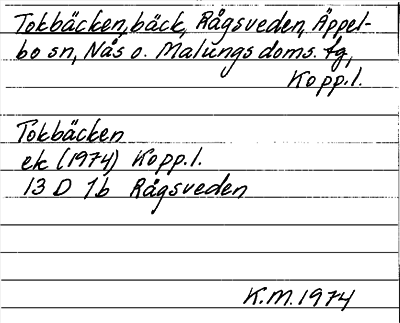 Tokbäcken, bäck, Rågsveden, Äppel-
bo sn, Nås o. Malungs doms. tg,
Kopp.l.
Tokbäcken
ek (1974) Kopp.l.
13 D 7b Rågsveden
K.M. 1974